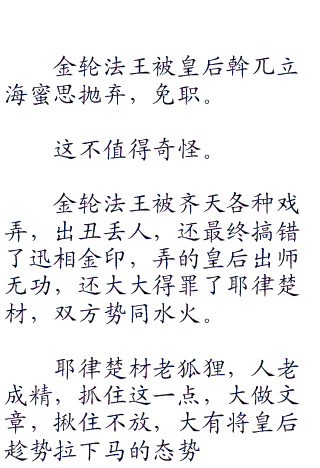 金轮法王被皇后斡兀立
海蜜思抛弃，免职。
这不值得奇怪。
金轮法王被齐天各种戏
弄，出丑丢人，还最终搞错
了迅相金印，弄的皇后出师
无功，还大大得罪了耶律楚
材，双方势同水火。
耶律楚材老狐狸，人老
成精，抓住这一点，大做文
章，揪住不放，大有将皇后
趁势拉下马的态势